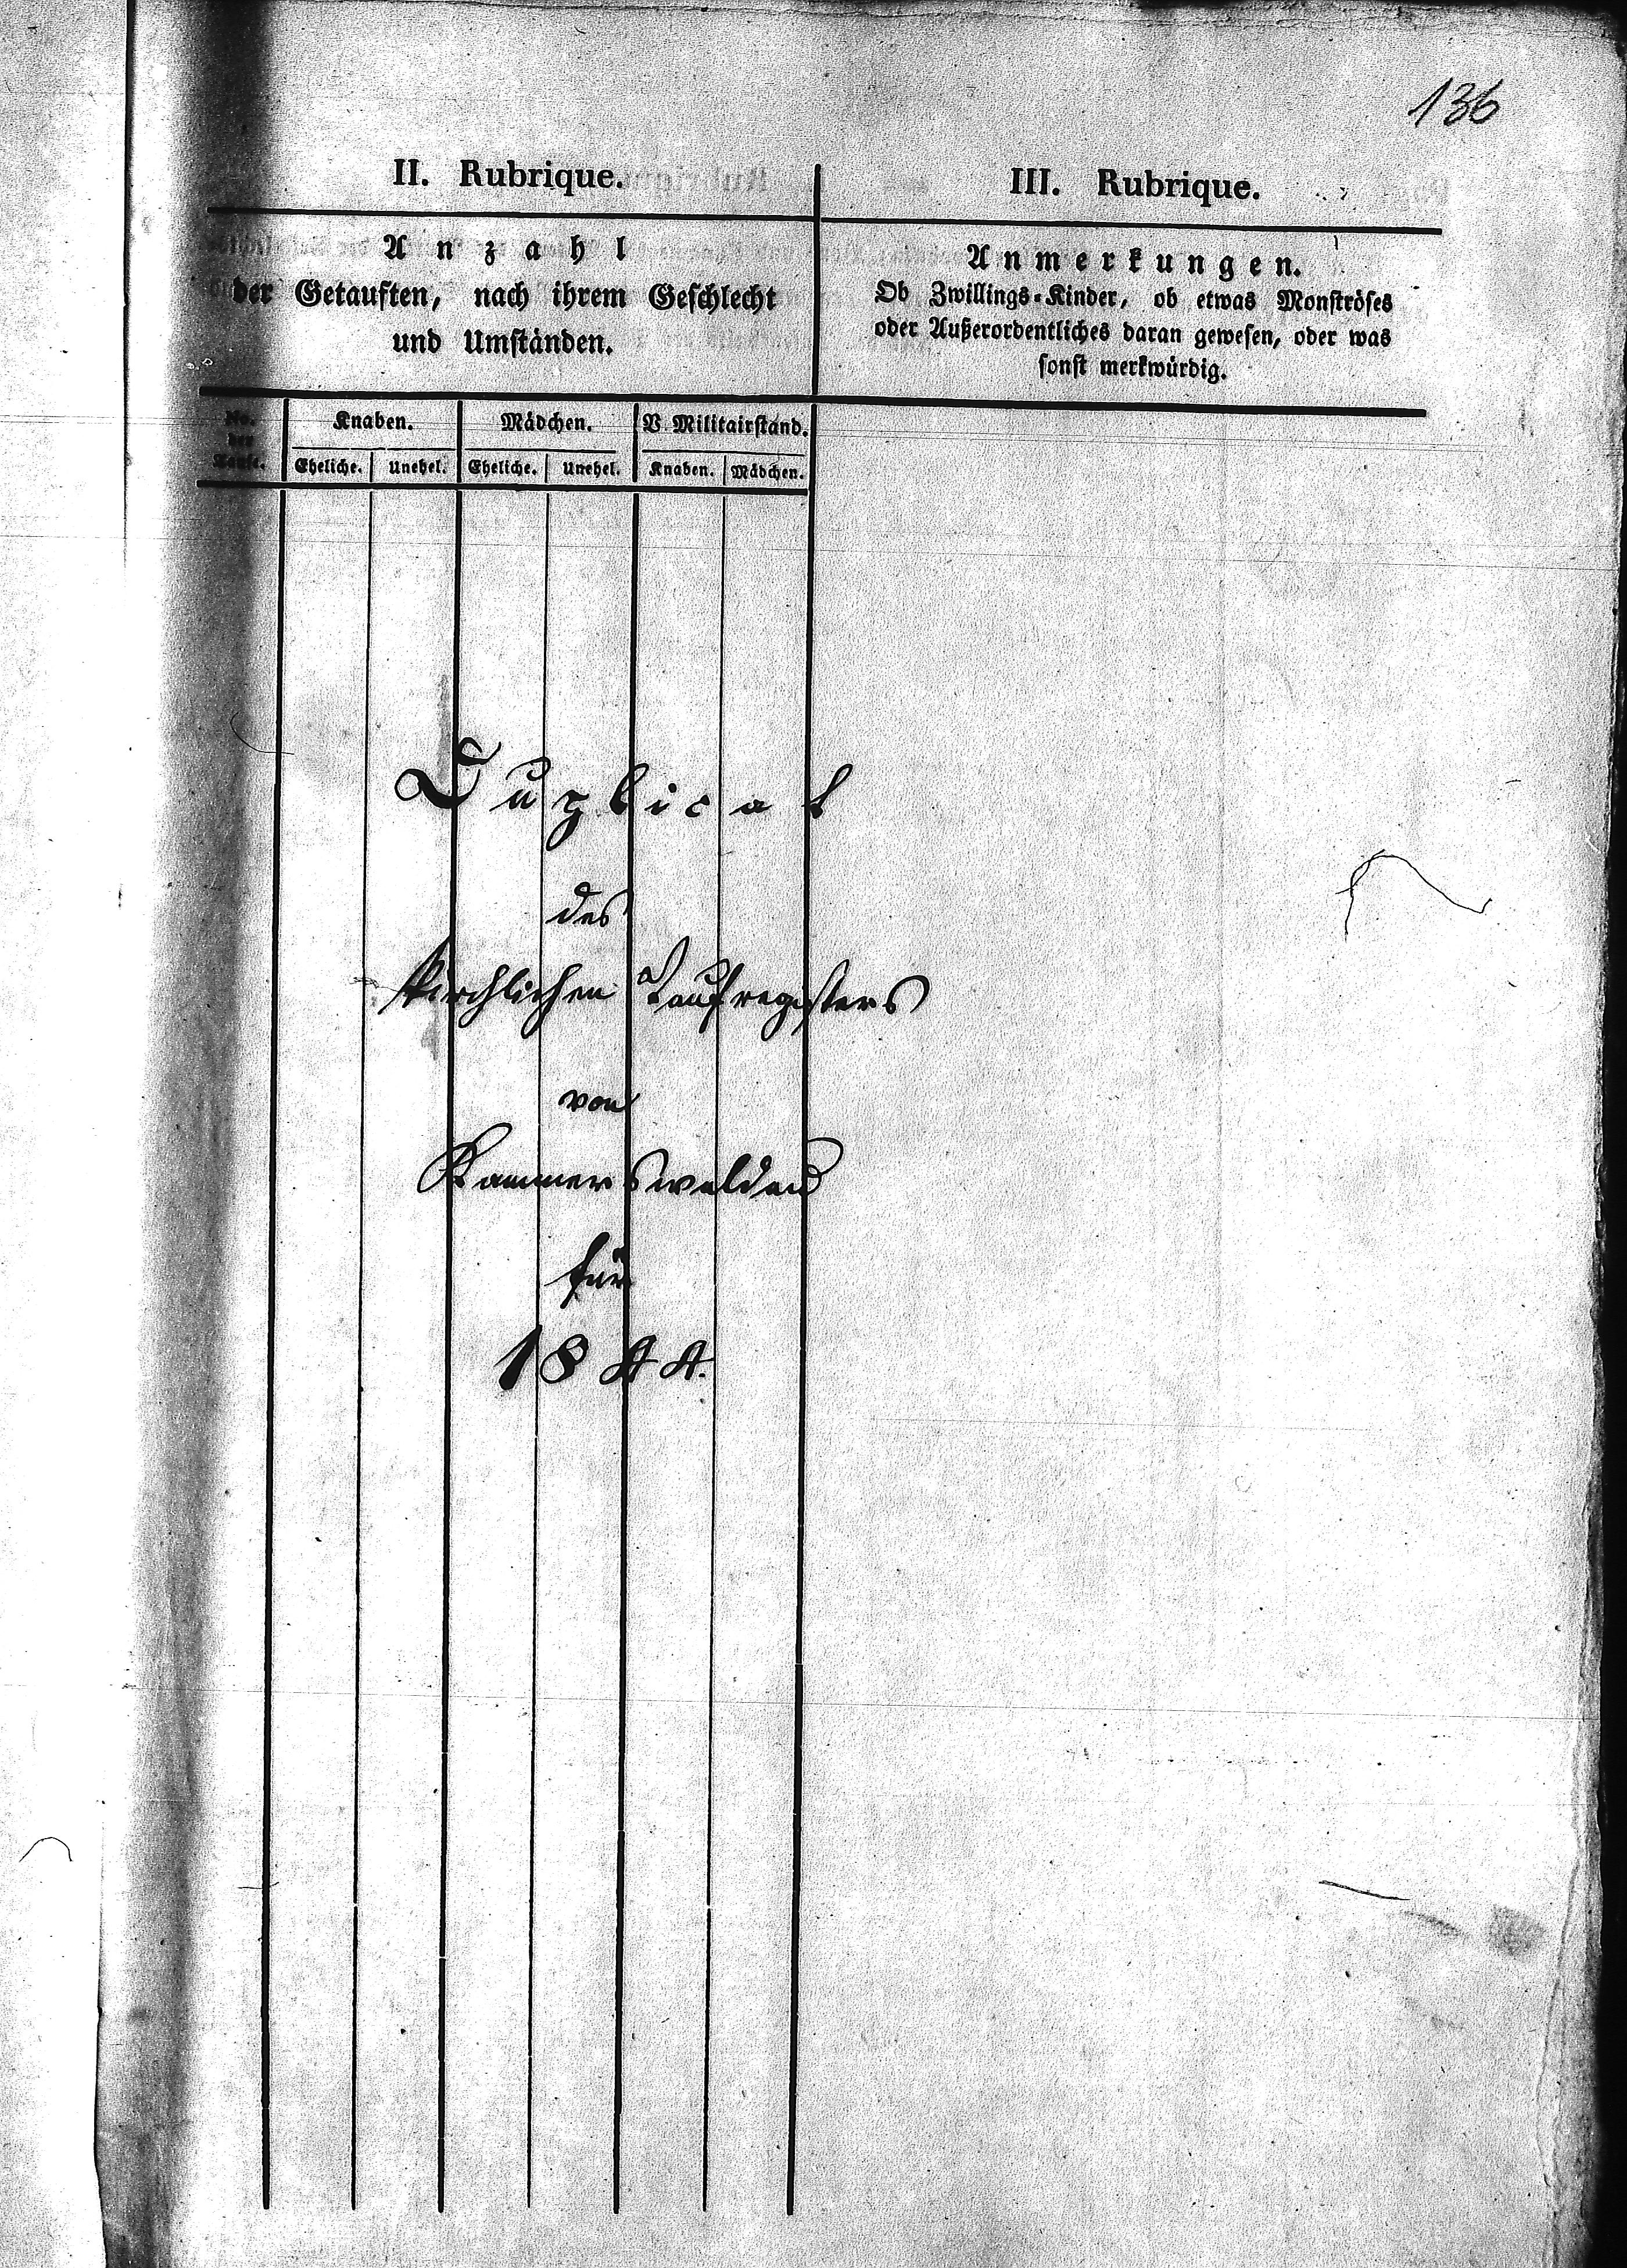 136
II. Rubrique.
Anzahl
der Getauften, nach ihrem Geschlecht
und Umständen.
III. Rubrique.
Anmerkungen.
Ob Zwillings-Kinder, ob etwas Monströses
oder Außerordentliches daran gewesen, oder was
sonst merkwürdig.
No.
der
Taufe.
Knaben.
Mädchen.
V. Militairstand.
Eheliche.
Unehel.
Eheliche.
Unehel.
Knaben.
Mädchen.
Duplicat
des
kirchlichen Taufregisters
von
Kammerswaldau
für
1844.